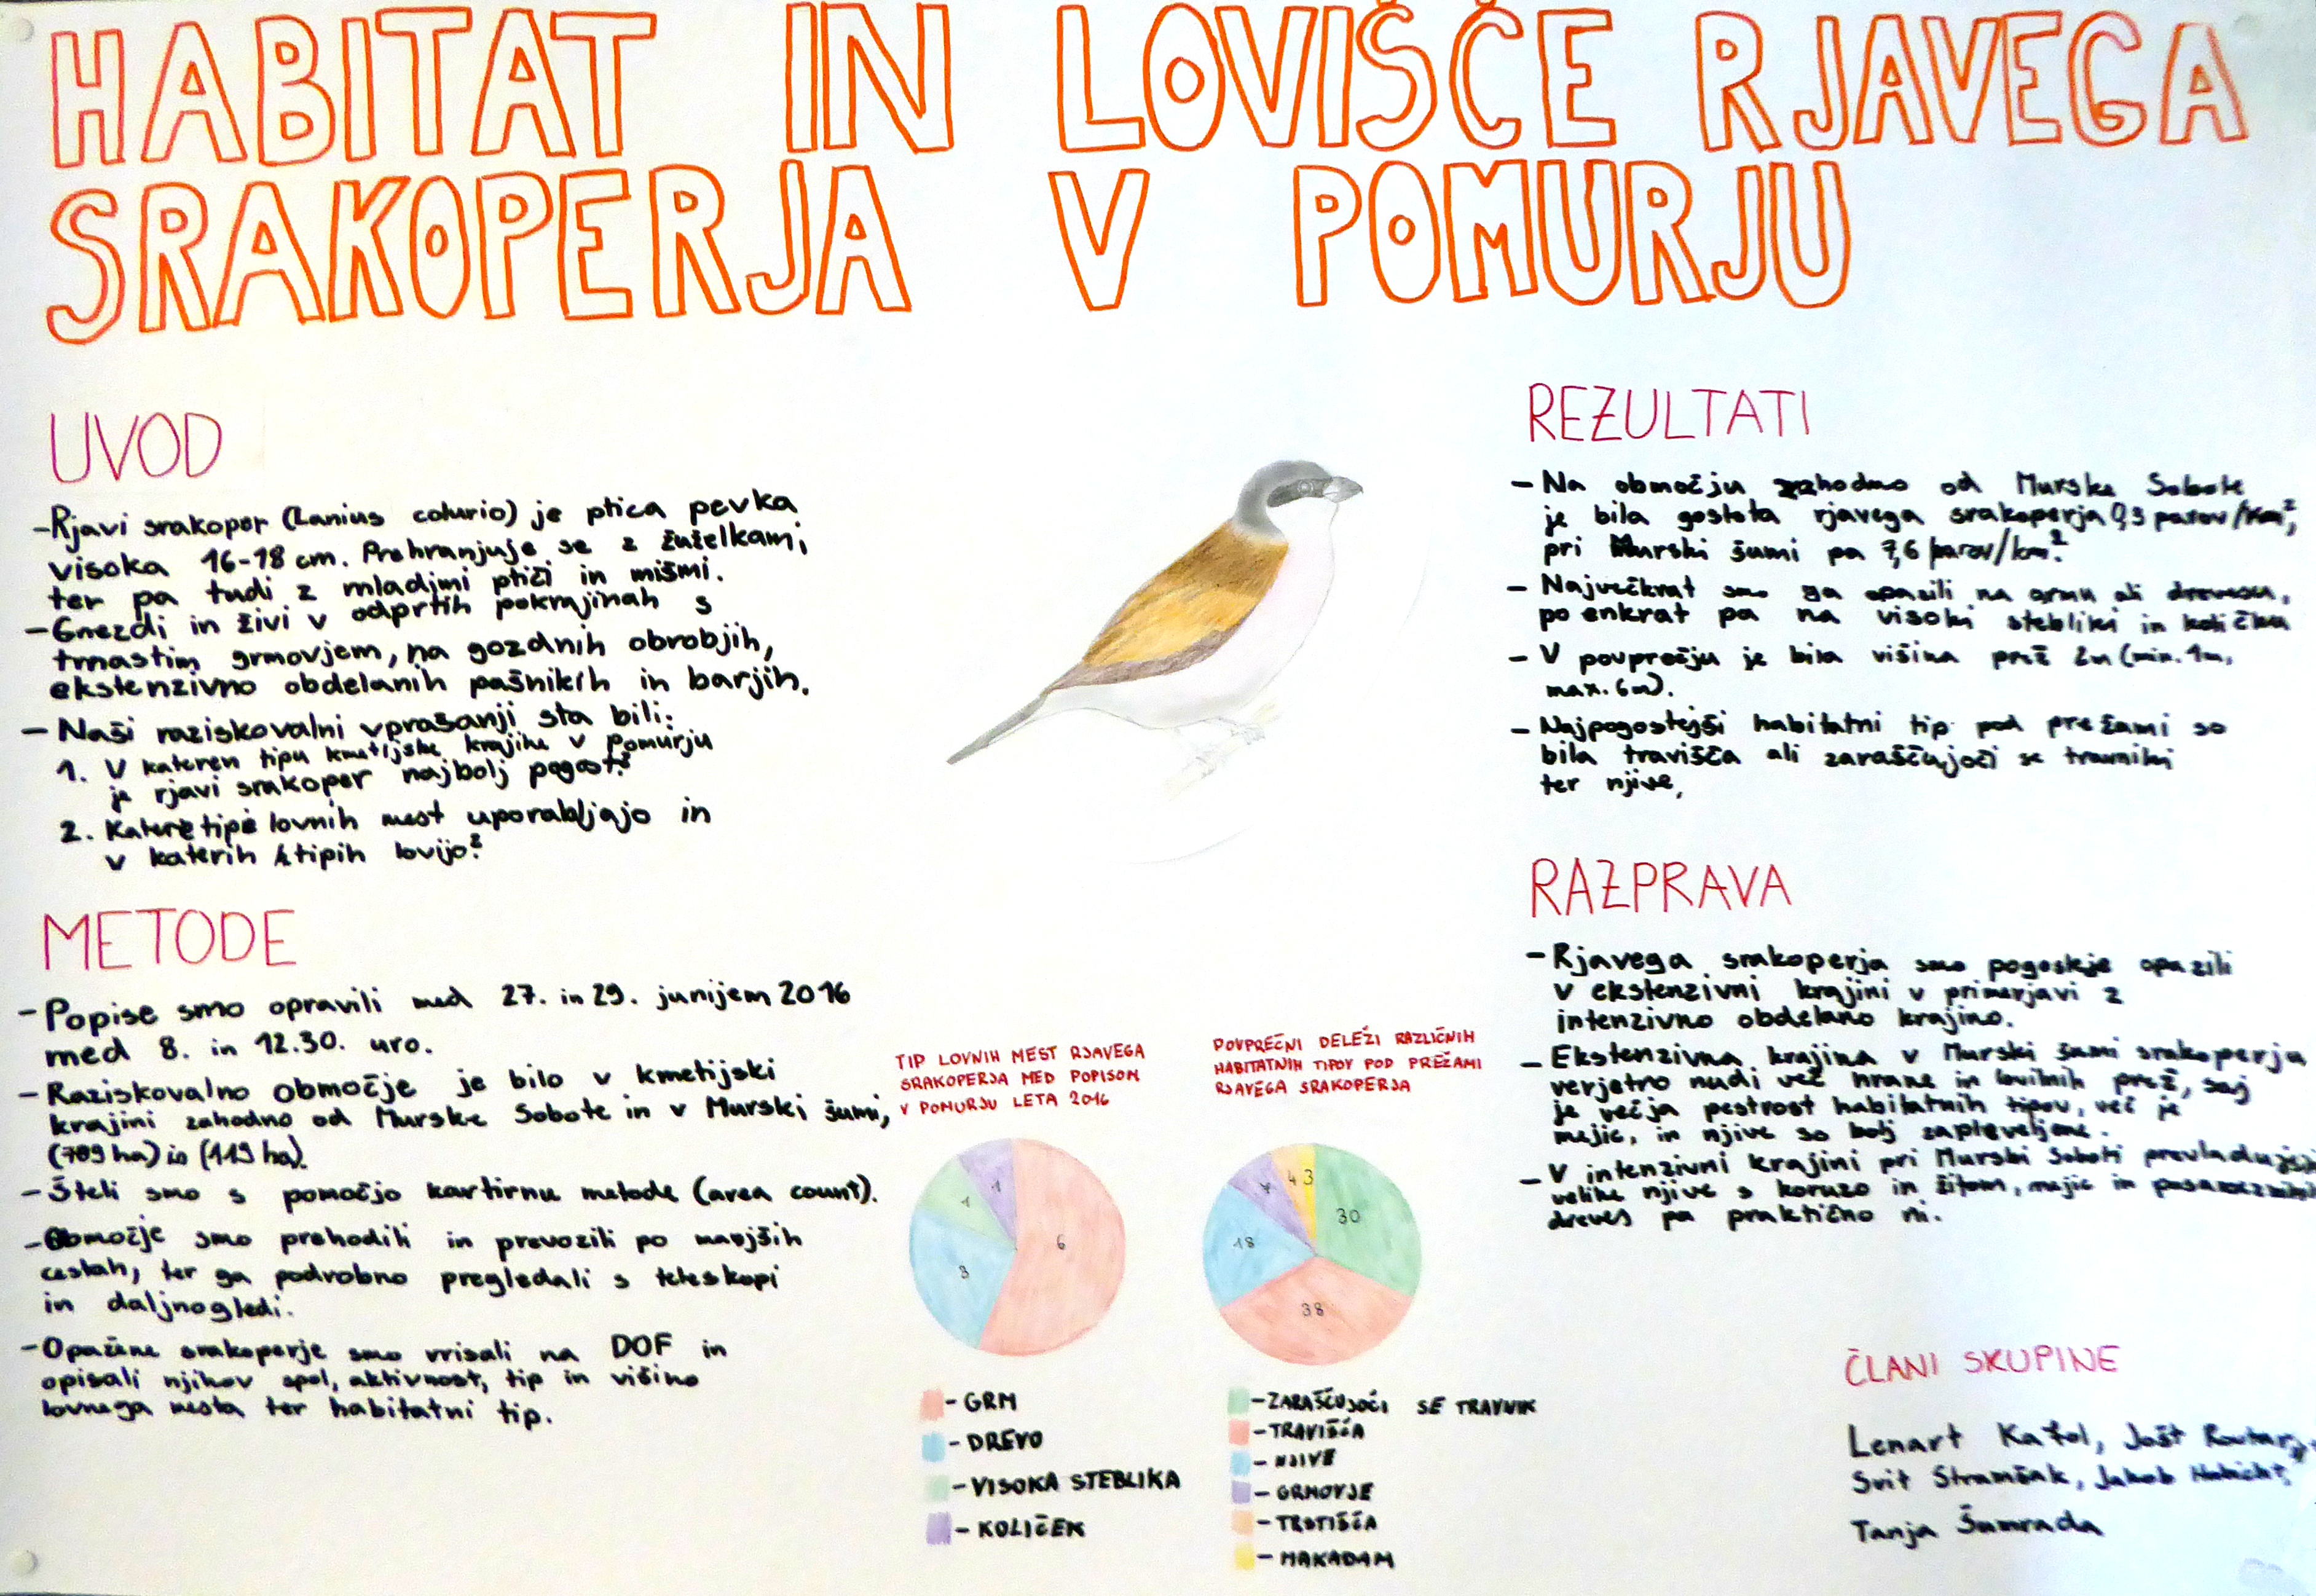 HABITAT IN LOVIŠČE RJAVEGA
SRAKOPERJA V POMURJU
UVOD
- Rjavi srakoper (Lanius colurio) je ptica pevka
visoka 16-18 cm. Prehranjuje se z žuželkami,
ter pa tudi z mladimi ptiči in mišmi.
- Gnezdi in živi v odprtih pokrajinah s
trnastim grmovjem, na gozdnih obrobjih,
ekstenzivno obdelanih pašnikih in barjih.
- Naši raziskovalni vprašanji sta bili:
1. V kateren tipu kmetijske krajine v Pomurju
je rjavi srakoper najbolj pogost?
2. Katere tipe lovnih mest uporabljajo in
v katerih tipih lovijo?
METODE
- Popise smo opravili med 27. in 29. junijem 2016
med 8. in 12.30. uro.
- Raziskovalno območje je bilo v kmetijski
krajini zahodno od Murske Sobote in v Murski šumi,
(709 ha) in (119 ha).
- Šteli smo s pomočjo kartirnu metode (area count).
- Območje smo prehodili in prevozili po manjših
cestah, ter ga podrobno pregledali s teleskopi
in daljnogledi.
- Opažene srakoperje smo vrisali na DOF in
opisali njihov spol, aktivnost, tip in višino
lovnega mesta ter habitatni tip.
TIP LOVNIH MEST RJAVEGA
SRAKOPERJA MED POPISOM
V POMURJU LETA 2016
6
3
1
1
- GRM
- DREVO
- VISOKA STEBLIKA
- KOLIČEK
POVPREČNI DELEŽI RAZLIČNIH
HABITATNIH TIPOV POD PREŽAMI
RJAVEGA SRAKOPERJA
30
38
18
7
4
3
- ZARAŠČUJOČI SE TRAVNIK
- TRAVIŠČA
- NJIVE
- GRMOVJE
- TRSTIŠČA
- MAKADAM
REZULTATI
- Na območju zahodno od Murske Sobote
je bila gostota rjavega srakoperja 0,3 parov/km²,
pri Murski šumi pa 7,6 parov/km².
- Največkrat smo ga opazili na grmu ali drevesu,
po enkrat pa na visoki stebliki in količku
- V povprečju je bila višina prež 2m (min. 1m,
max. 6m).
- Najpogostejši habitatni tip pod prežami so
bila travišča ali zaraščujoči se travniki
ter njive,
RAZPRAVA
- Rjavega srakoperja smo pogosteje opazili
v ekstenzivni krajini v primerjavi z
intenzivno obdelano krajino.
- Ekstenzivna krajina v Murski šumi srakoperja
verjetno nudi več hrane in lovilnih prež, saj
je večja pestrost habitatnih tipov, več je
mejic, in njive so bolj zapleveljene.
- V intenzivni krajini pri Murski Soboti prevladujejo
velike njive s koruzo in žitom, mejic in posameznih
dreves pa praktično ni.
ČLANI SKUPINE
Lenart Kafol, Jošt
Svit Stramšak, Jakob Habicht,
Tanja Šumrada